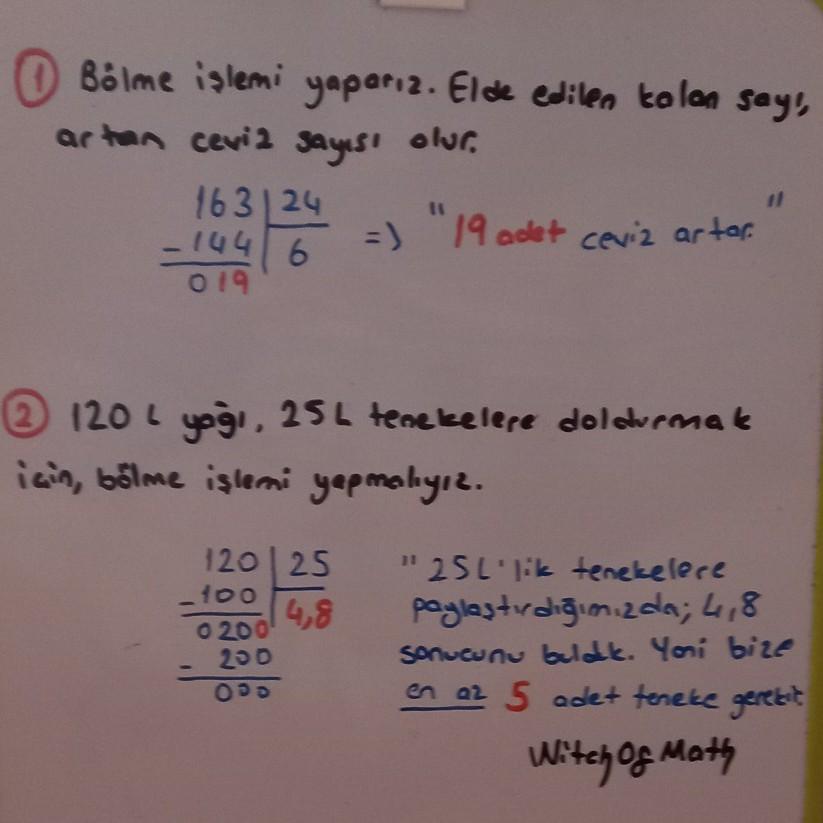 1 Bölme işlemi yaparız. Elde edilen kalan sayı,
artan ceviz sayısı olur.
163 | 24
- 144 6 => "19 adet ceviz artar."
019
2 120 L yağı, 25L tenekelere doldurmak
için, bölme işlemi yapmalıyız.
120 | 25
- 100 4,8
0200
- 200
000
"25L'lik tenekelere
paylaştırdığımızda; 4,8
sonucunu bulduk. Yani bize
en az 5 adet teneke gerekir.
WitchOfMath